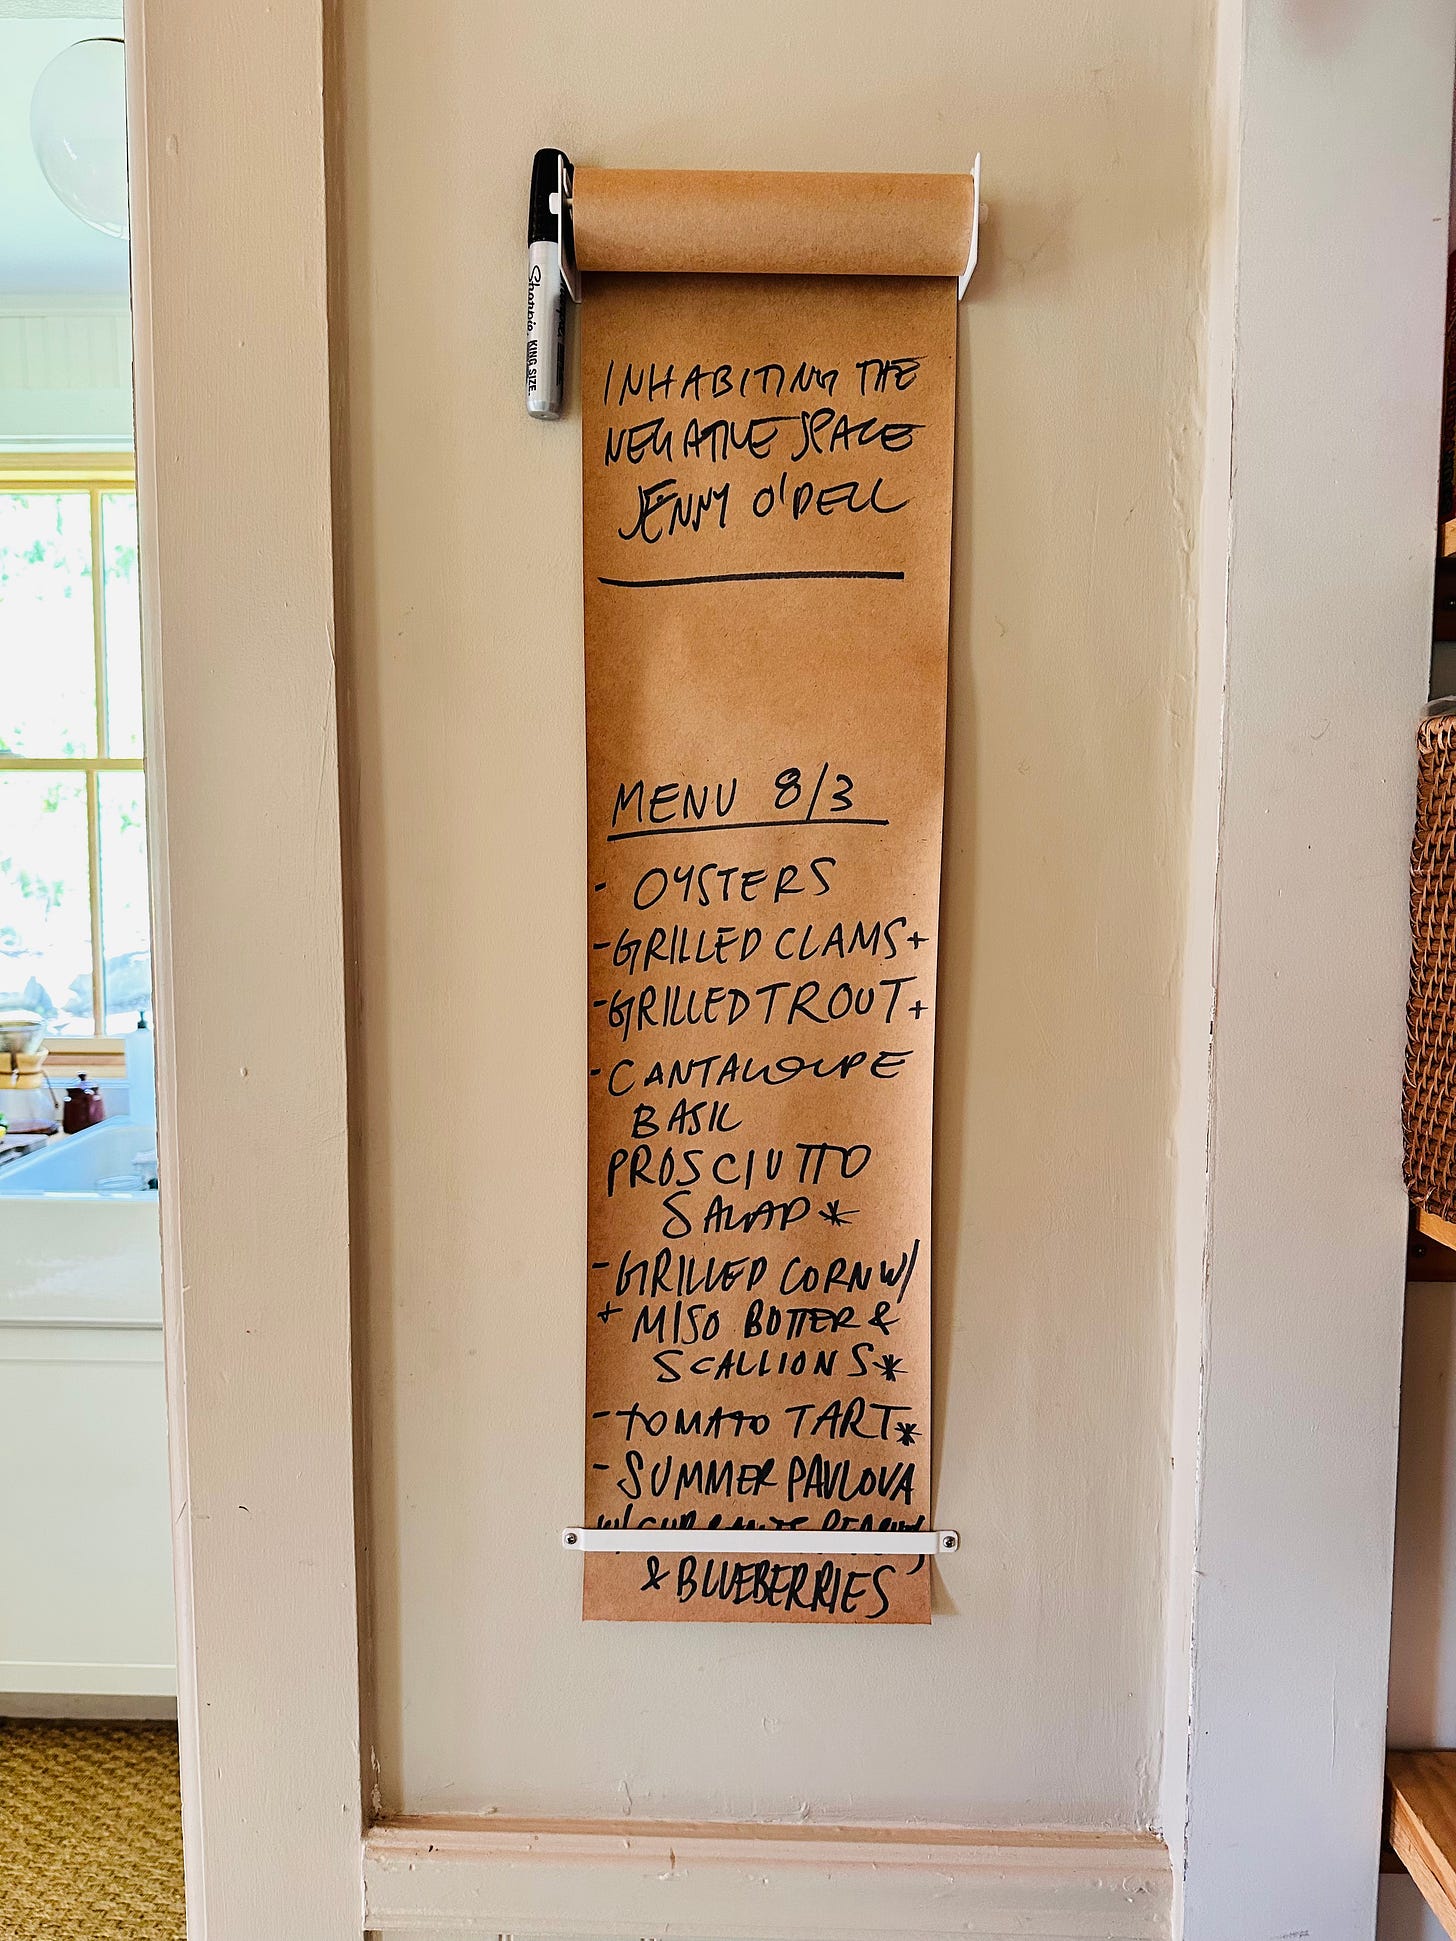 Sharpie. KING SIZE.
INHABITING THE
NEGATIVE SPACE
JENNY O'DELL
MENU 8/3
- OYSTERS
- GRILLED CLAMS +
- GRILLED TROUT +
- CANTALOUPE
BASIL
PROSCIUTTO
SALAD *
- GRILLED CORN W/
+ MISO BUTTER &
SCALLIONS *
- TOMATO TART *
- SUMMER PAVLOVA
W/ CURRANTS
& BLUEBERRIES